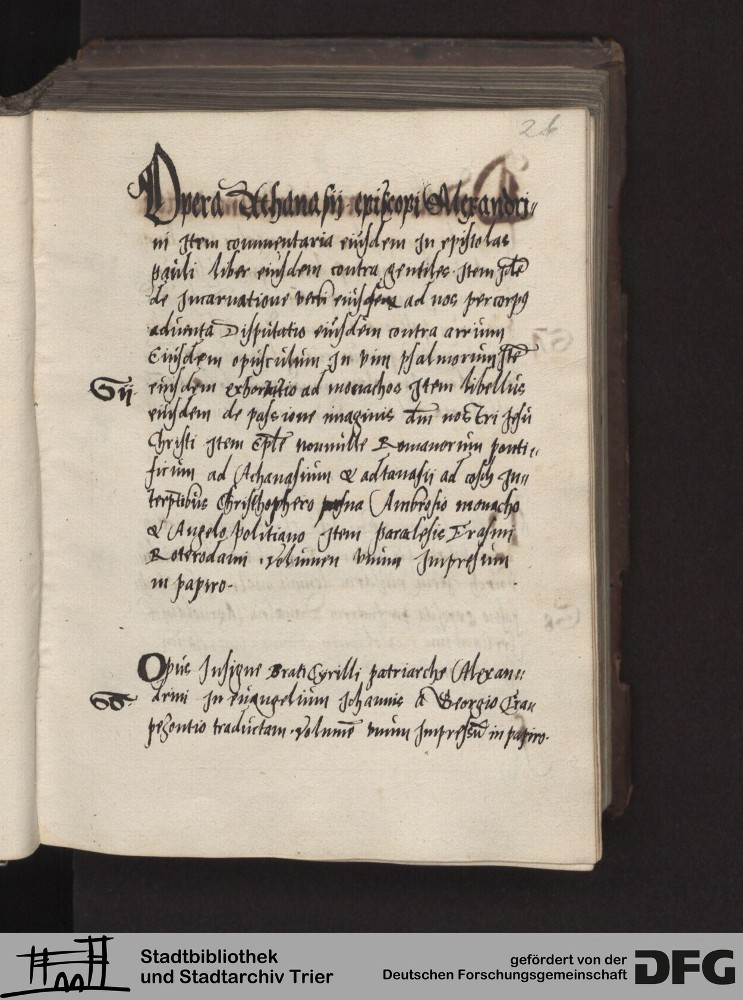 26
Opera Athanasii episcopi Alexandri„
ni Item commentaria eiusdem In epistolas
pauli liber eiusdem contra gentiles Item
de Incarnatione verbi eiusdem ad nos per corpus
aduentu Disputatio eiusdem contra arrium
Eiusdem opusculum In vim psalmorum Ite
Sij. eiusdem exhortatio ad monachos Item libellus
eiusdem de passione imaginis dni nostri Jesu
Christi Item Eple nonnulle Romanorum ponti„
ficum ad Athanasium & adtanasii ad eosdem In„
terptibus Christhophero psona Ambrosio monacho
& Angelo politiano Item paraclesis Erasmi
Roterodami . volumen vnum Impressum
in papiro.
Opus Insigne Beati Cyrilli patriarche Alexan„
drini In euangelium Iohannis A Georgio Tra„
pezontio traductum . volumē vnum Impressū in papiro.
Stadtbibliothek
und Stadtarchiv Trier
gefördert von der
Deutschen Forschungsgemeinschaft
DFG